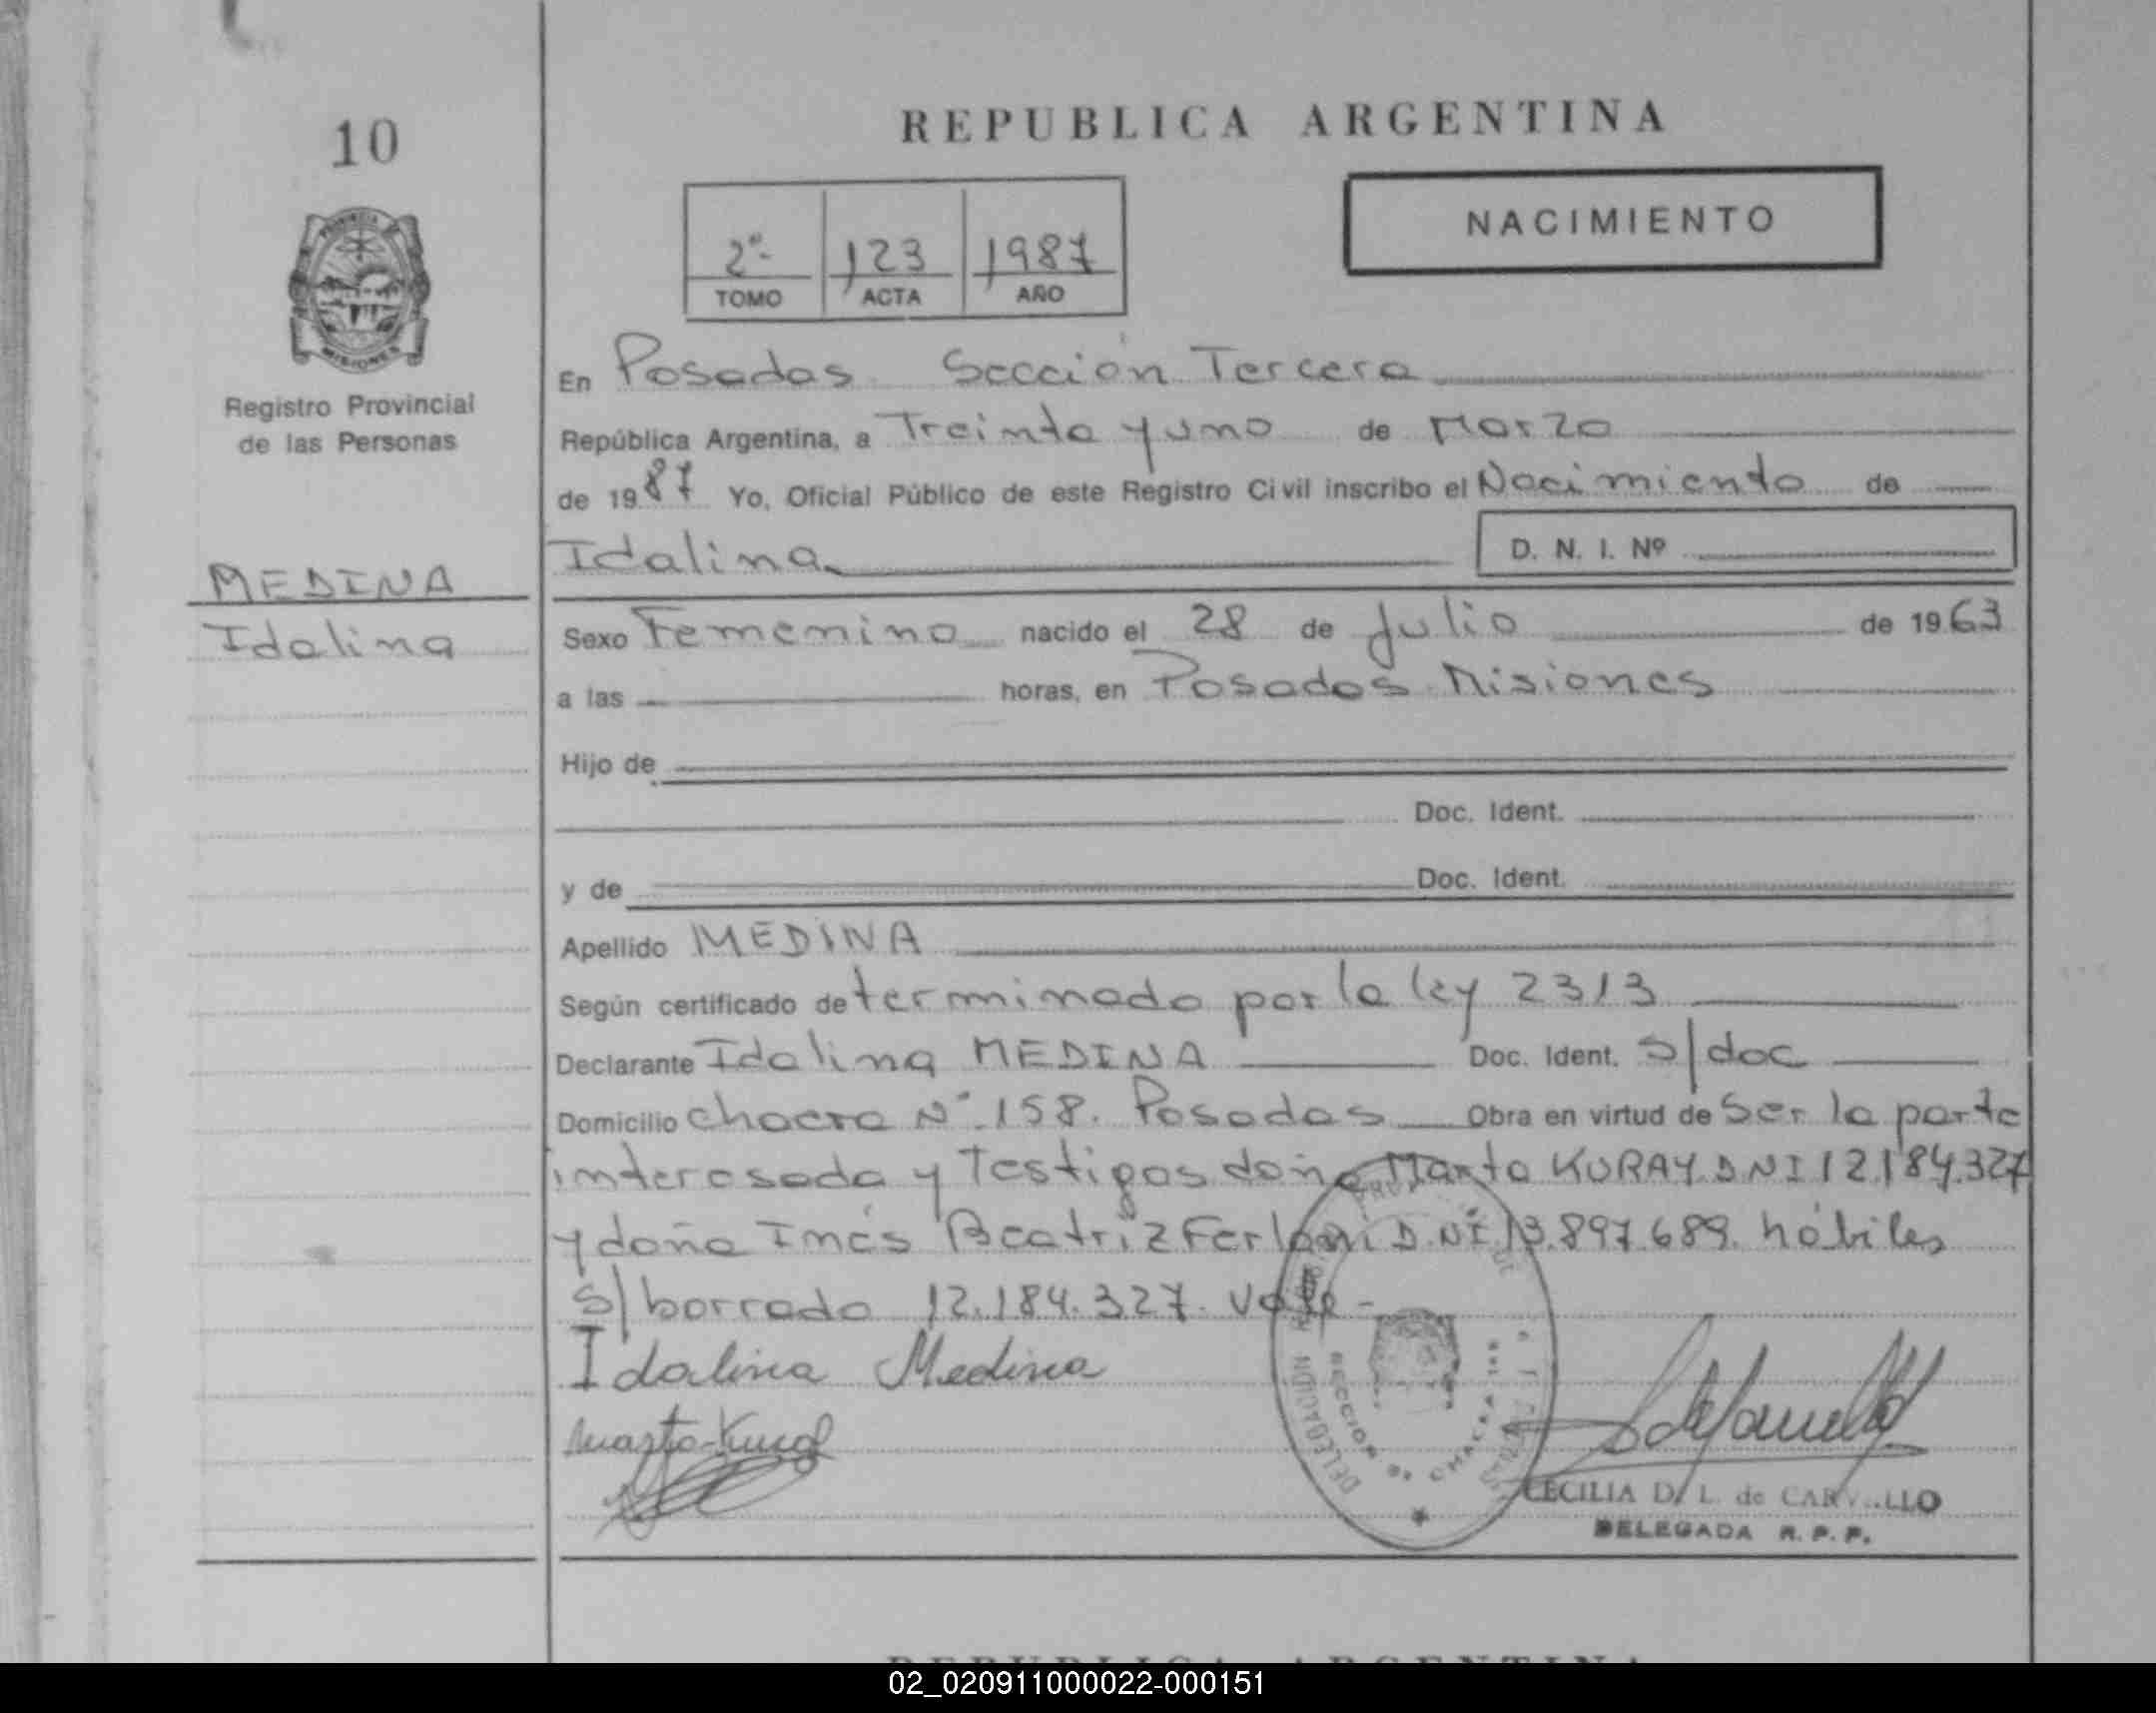 10
REPUBLICA ARGENTINA
NACIMIENTO
2º- 123 1987
TOMO ACTA AÑO
PROVINCIA
MISIONES
Registro Provincial
de las Personas
MEDINA
Idalina
En Posadas Sección Tercera
República Argentina, a Treinta y uno de Marzo
de 1987 Yo, Oficial Público de este Registro Civil inscribo el Nacimiento de
Idalina
D. N. I. Nº
Sexo Femenino nacido el 28 de Julio de 1963
a las horas, en Posadas Misiones
Hijo de
Doc. Ident.
y de Doc. Ident.
Apellido MEDINA
Según certificado determinado por la ley 2313
Declarante Idalina MEDINA Doc. Ident. S/doc
Domicilio chacra Nº 158. Posadas Obra en virtud de Ser la parte
interesada y Testigos doña Marta KURAY DNI 12.184.327
y doña Inés Beatriz Ferloni D.NI 13.897.689. hábiles
S/borrado 12.184.327. Vale-
Idalina Medina
Marta Kuray
DELEGACION
SECCION 3ª CHACRA
CECILIA D. L. de
DELEGADA R. P. P.
REPUBLICA ARGENTINA
02_020911000022-000151